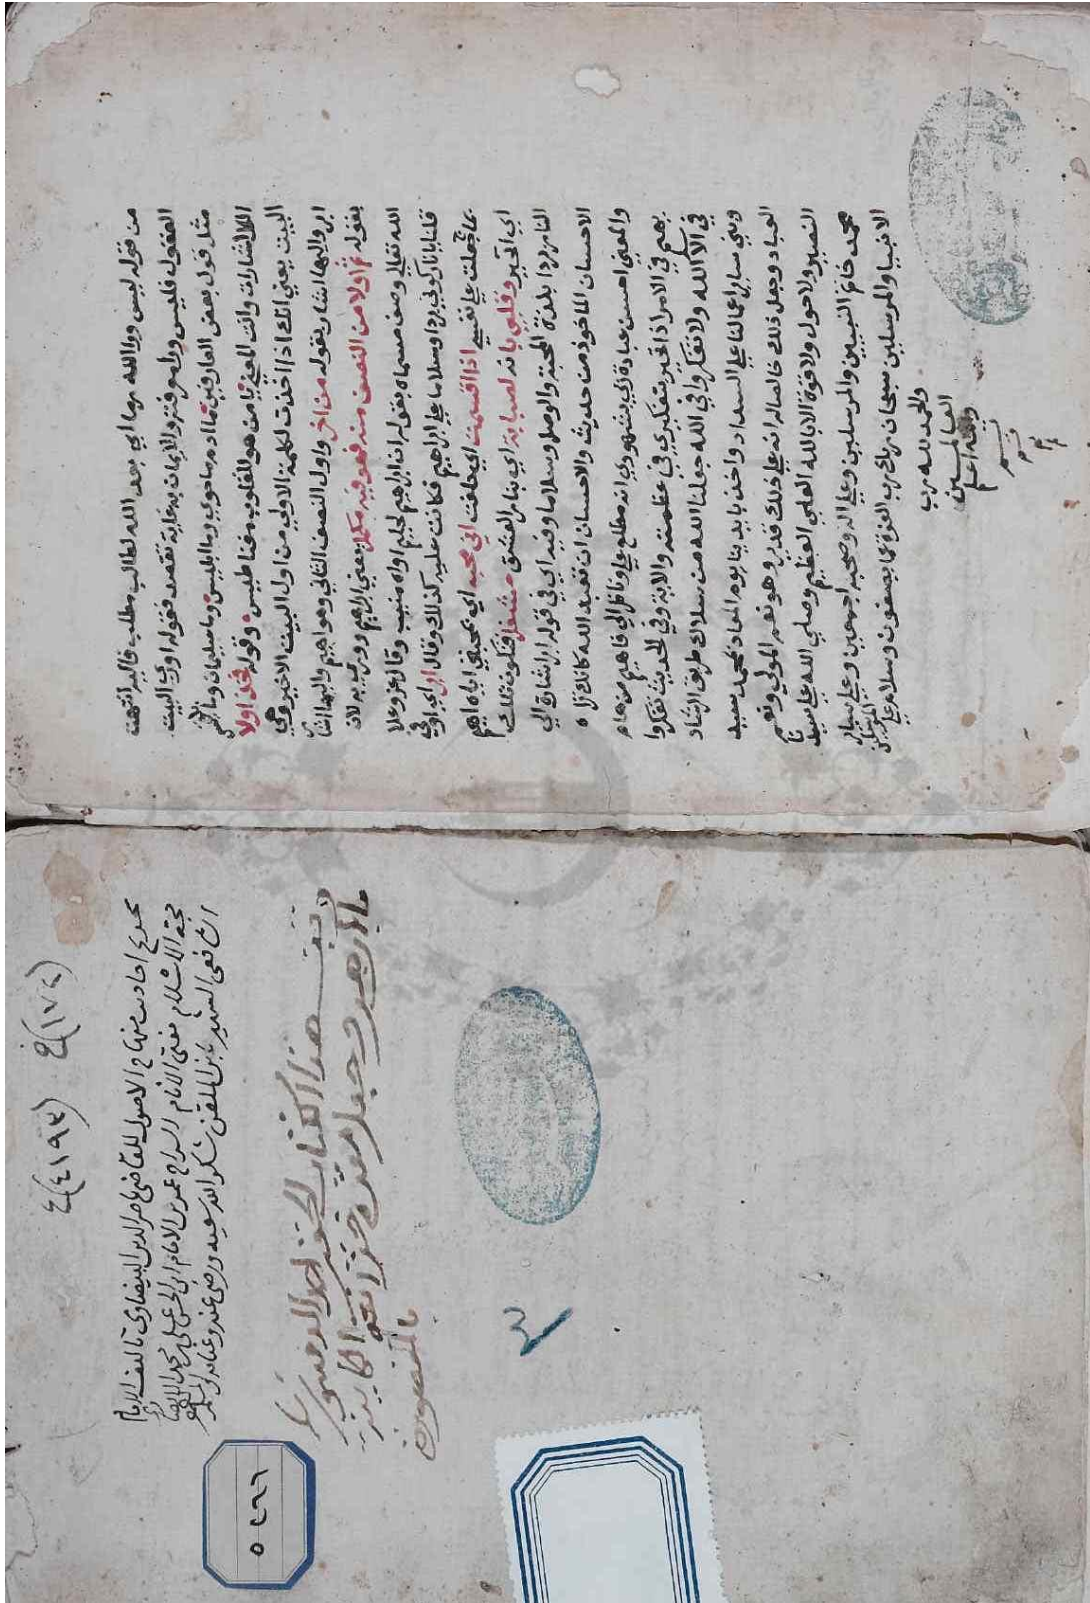 من قوله ليس وراء الله مرمى اي بعد الله لطالب مطلب فاليه انتهت
العقول فليس وراءه مرمى والايمان به غاية تقصد فقوله اول البيت
مثل قول بعض العارفين ما ادم ما حوي وما ابليس وما سليمان وما بلقيس
الكل اشارات وانت المعنى يا من هو للقلوب مغناطيس وقوله فخذ اولا
البيت يعني انك اذا اخذت لكلمة الاولي من اول البيت الاخير وهي
ابر والهما اشار بقوله من اخر واول النصف الثاني وهو اهيم والهما اشار
بقوله ثم اولا من النصف منه فهو فيه مكملا يعني ابراهيم ووري به لان
الله تعالى وصف مسماه بقوله ان ابراهيم لحليم اواه منيب وقال عز وعلا
قلنا يا نار كوني بردا وسلاما علي ابراهيم فكانت عليه كذلك وقال ابر اي اوفي
بما جعلت علي نفسي اذا اقسمت اي حلفت اني محبه اي محبتي اياه اهيم
اي اتحير وقلبي باقد لصبابة اي بنار العشق مشتعلا فتكون تلك
النار بردا بلذة المحبة والوصل وسلاما وفيه اي في قوله ابر اشارة الي
الاحسان الماخوذ من حديث والاحسان ان تعبد الله كانك تراه
والمعنى احسن عبادة ربي بشهودي انه مطلع علي وناظر الي فاهيم من هام
يهيم في الامر اذا تحير بتفكري في عظمته والاية وفي الحديث تفكروا
في آلاء الله ولا تفكروا في الله جعلنا الله من سلاك طريق الرشاد
وبني مسايرا عمالنا علي السداد واخذ بايدينا يوم المعاد بمحمد سيد
العباد وجعل ذلك خالصا له انه علي ذلك قدير وهو نعم المولي ونعم
النصير ولا حول ولا قوة الا بالله العلي العظيم وصلى الله علي سيدنا
محمد خاتم النبيين والمرسلين وعلي اله وصحبه اجمعين وعلي سائر
الانبيا والمرسلين سبحان ربك رب العزة عما يصفون وسلام علي المرسلين
والحمد لله رب
العالمين
والله اعلم
م
(١٧٤)
(٤١٩٣)
احاديث منهاج الاصول للقاضي ناصر الدين البيضاوي تاليف الامام
حجة الاسلام مفتي الانام السراج عمر بن الامام ابي الحسن علي بن محمد الانصاري
الشافعي الشهير بابن الملقن شكر الله سعيه ورضي عنه وعنا به والمسلمين
هذا الكتاب الحقير احمد الدمنهوري
وجعل مقره خزانته الكاينة
بالمقصورة
٣
٥٢٦٦